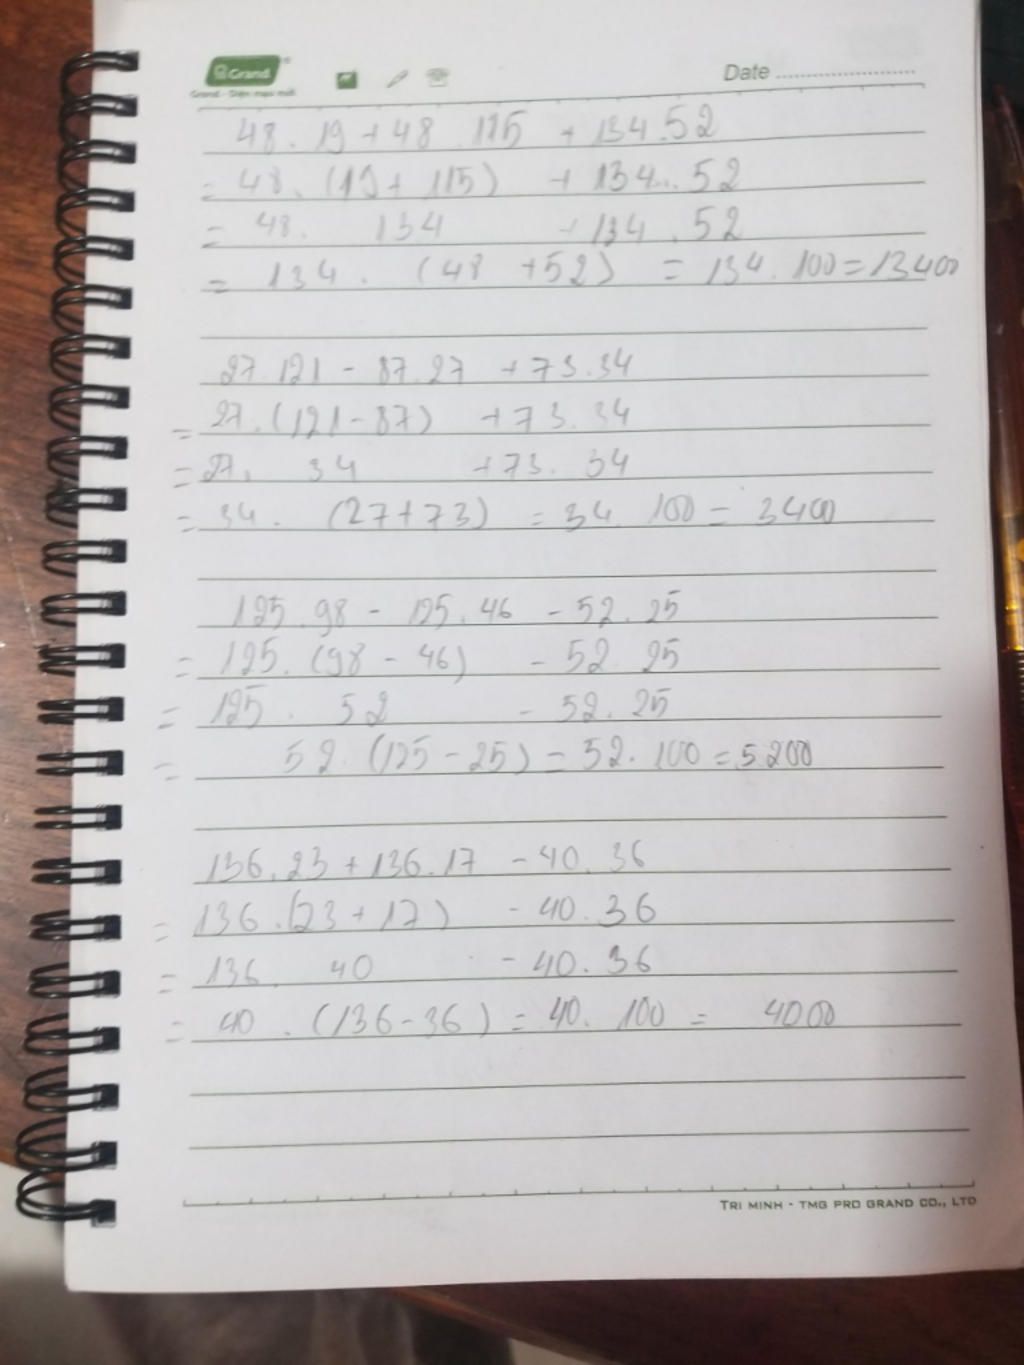 Grand
Grand - Diện mạo mới
Date
48 . 19 + 48 . 115 + 134 . 52
= 48 . (19 + 115) + 134 . 52
= 48 . 134 + 134 . 52
= 134 . (48 + 52) = 134 . 100 = 13400
27 . 121 - 87 . 27 + 73 . 34
= 27 . (121 - 87) + 73 . 34
= 27 . 34 + 73 . 34
= 34 . (27 + 73) = 34 . 100 = 3400
125 . 98 - 125 . 46 - 52 . 25
= 125 . (98 - 46) - 52 . 25
= 125 . 52 - 52 . 25
= 52 . (125 - 25) = 52 . 100 = 5200
136 . 23 + 136 . 17 - 40 . 36
= 136 . (23 + 17) - 40 . 36
= 136 40 - 40 . 36
= 40 . (136 - 36) = 40 . 100 = 4000
TRI MINH - TMG PRO GRAND CO., LTD